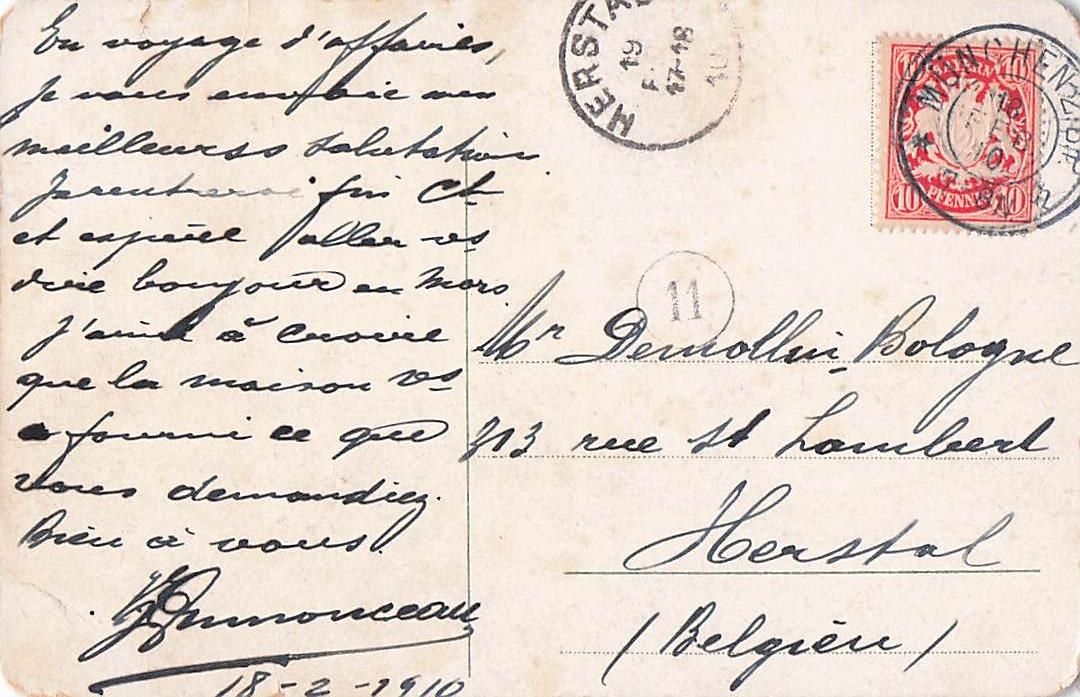 En voyage d'affaires,
je vous envoie mes
meilleurs salutation
Je rentrerai fin Ct
et espère aller vs
dire bonjour en Mars
J'aime à croire
que la maison vs
a fourni ce que
vous demandiez.
Bien à vous.
18-2-1910
HERSTAL
19
17-18
10
BAYERN
10 PFENNIG 10
MÜNCHEN
18
FEB
10
11
Mr Demollin-Bologne
313 rue St Lambert
Herstal
(Belgien)